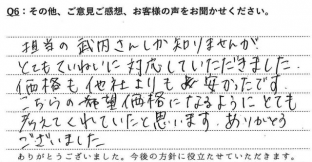 Q6：その他、ご意見ご感想、お客様の声をお聞かせください。
担当の武内さんしか知りませんが
とてもていねいに対応していただきました。
価格も他社よりも安かったです。
こちらの希望価格になるようにとても
考えてくれていたと思います。ありがとう
ございました
ありがとうございました。今後の方針に役立たせていただきます。